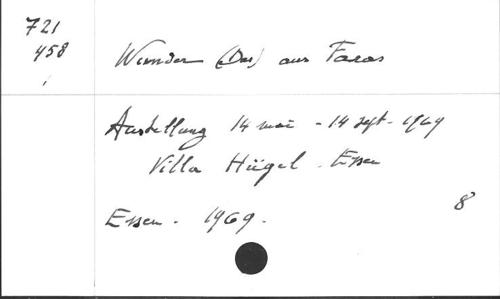 721
458
Wunder (Das) aus Faras
Austellung 14 mai - 14 sept - 1969
Villa Hügel. Essen
Essen. 1969.
8